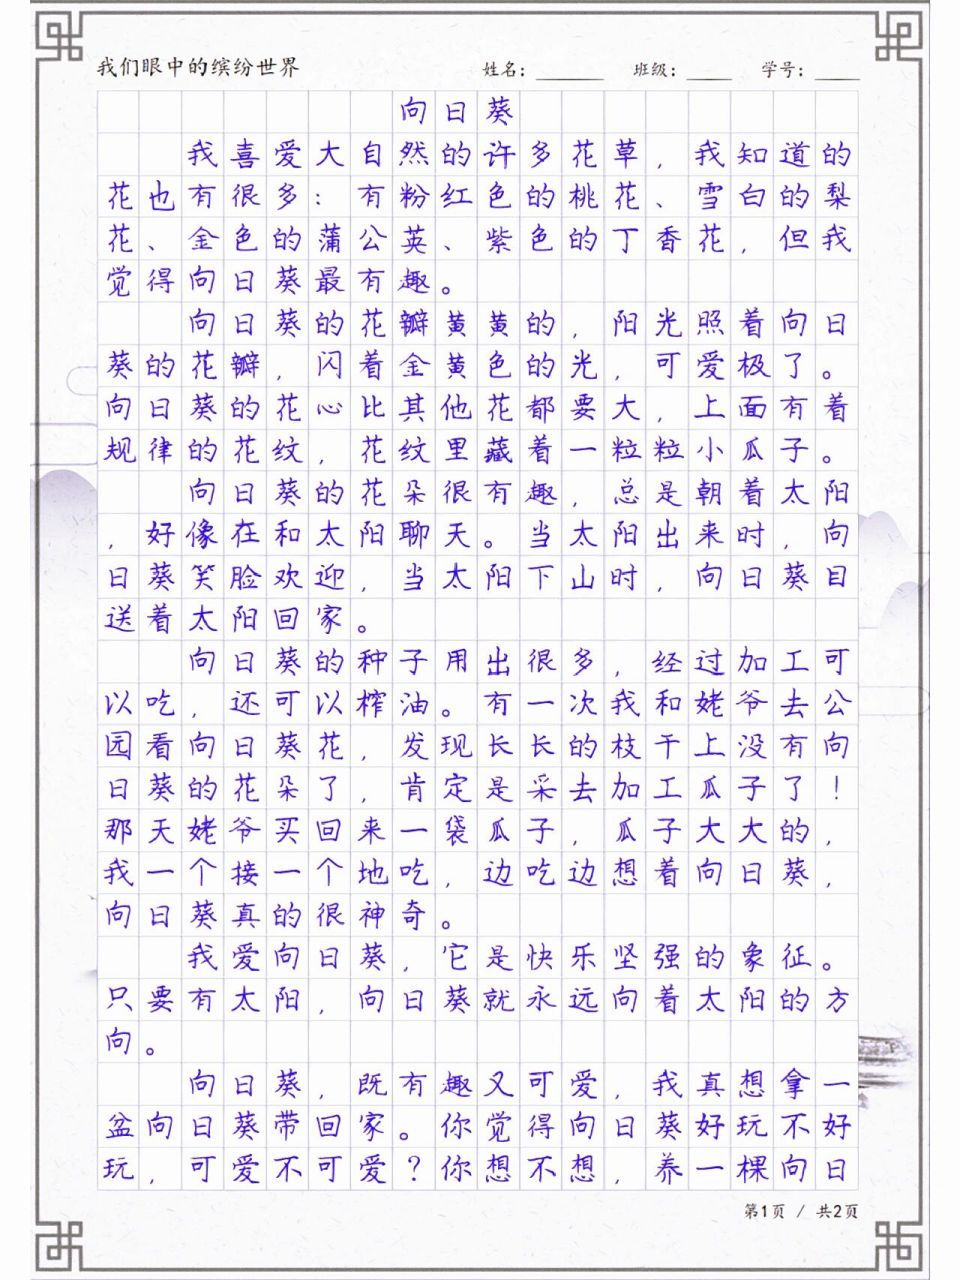 我们眼中的缤纷世界 姓名：______ 班级：____ 学号：____
向日葵
我喜爱大自然的许多花草，我知道的
花也有很多：有粉红色的桃花、雪白的梨
花、金色的蒲公英、紫色的丁香花，但我
觉得向日葵最有趣。
向日葵的花瓣黄黄的，阳光照着向日
葵的花瓣，闪着金黄色的光，可爱极了。
向日葵的花心比其他花都要大，上面有着
规律的花纹，花纹里藏着一粒粒小瓜子。
向日葵的花朵很有趣，总是朝着太阳
，好像在和太阳聊天。当太阳出来时，向
日葵笑脸欢迎，当太阳下山时，向日葵目
送着太阳回家。
向日葵的种子用出很多，经过加工可
以吃，还可以榨油。有一次我和姥爷去公
园看向日葵花，发现长长的枝干上没有向
日葵的花朵了，肯定是采去加工瓜子了！
那天姥爷买回来一袋瓜子，瓜子大大的，
我一个接一个地吃，边吃边想着向日葵，
向日葵真的很神奇。
我爱向日葵，它是快乐坚强的象征。
只要有太阳，向日葵就永远向着太阳的方
向。
向日葵，既有趣又可爱，我真想拿一
盆向日葵带回家。你觉得向日葵好玩不好
玩，可爱不可爱？你想不想，养一棵向日
第1页 / 共2页